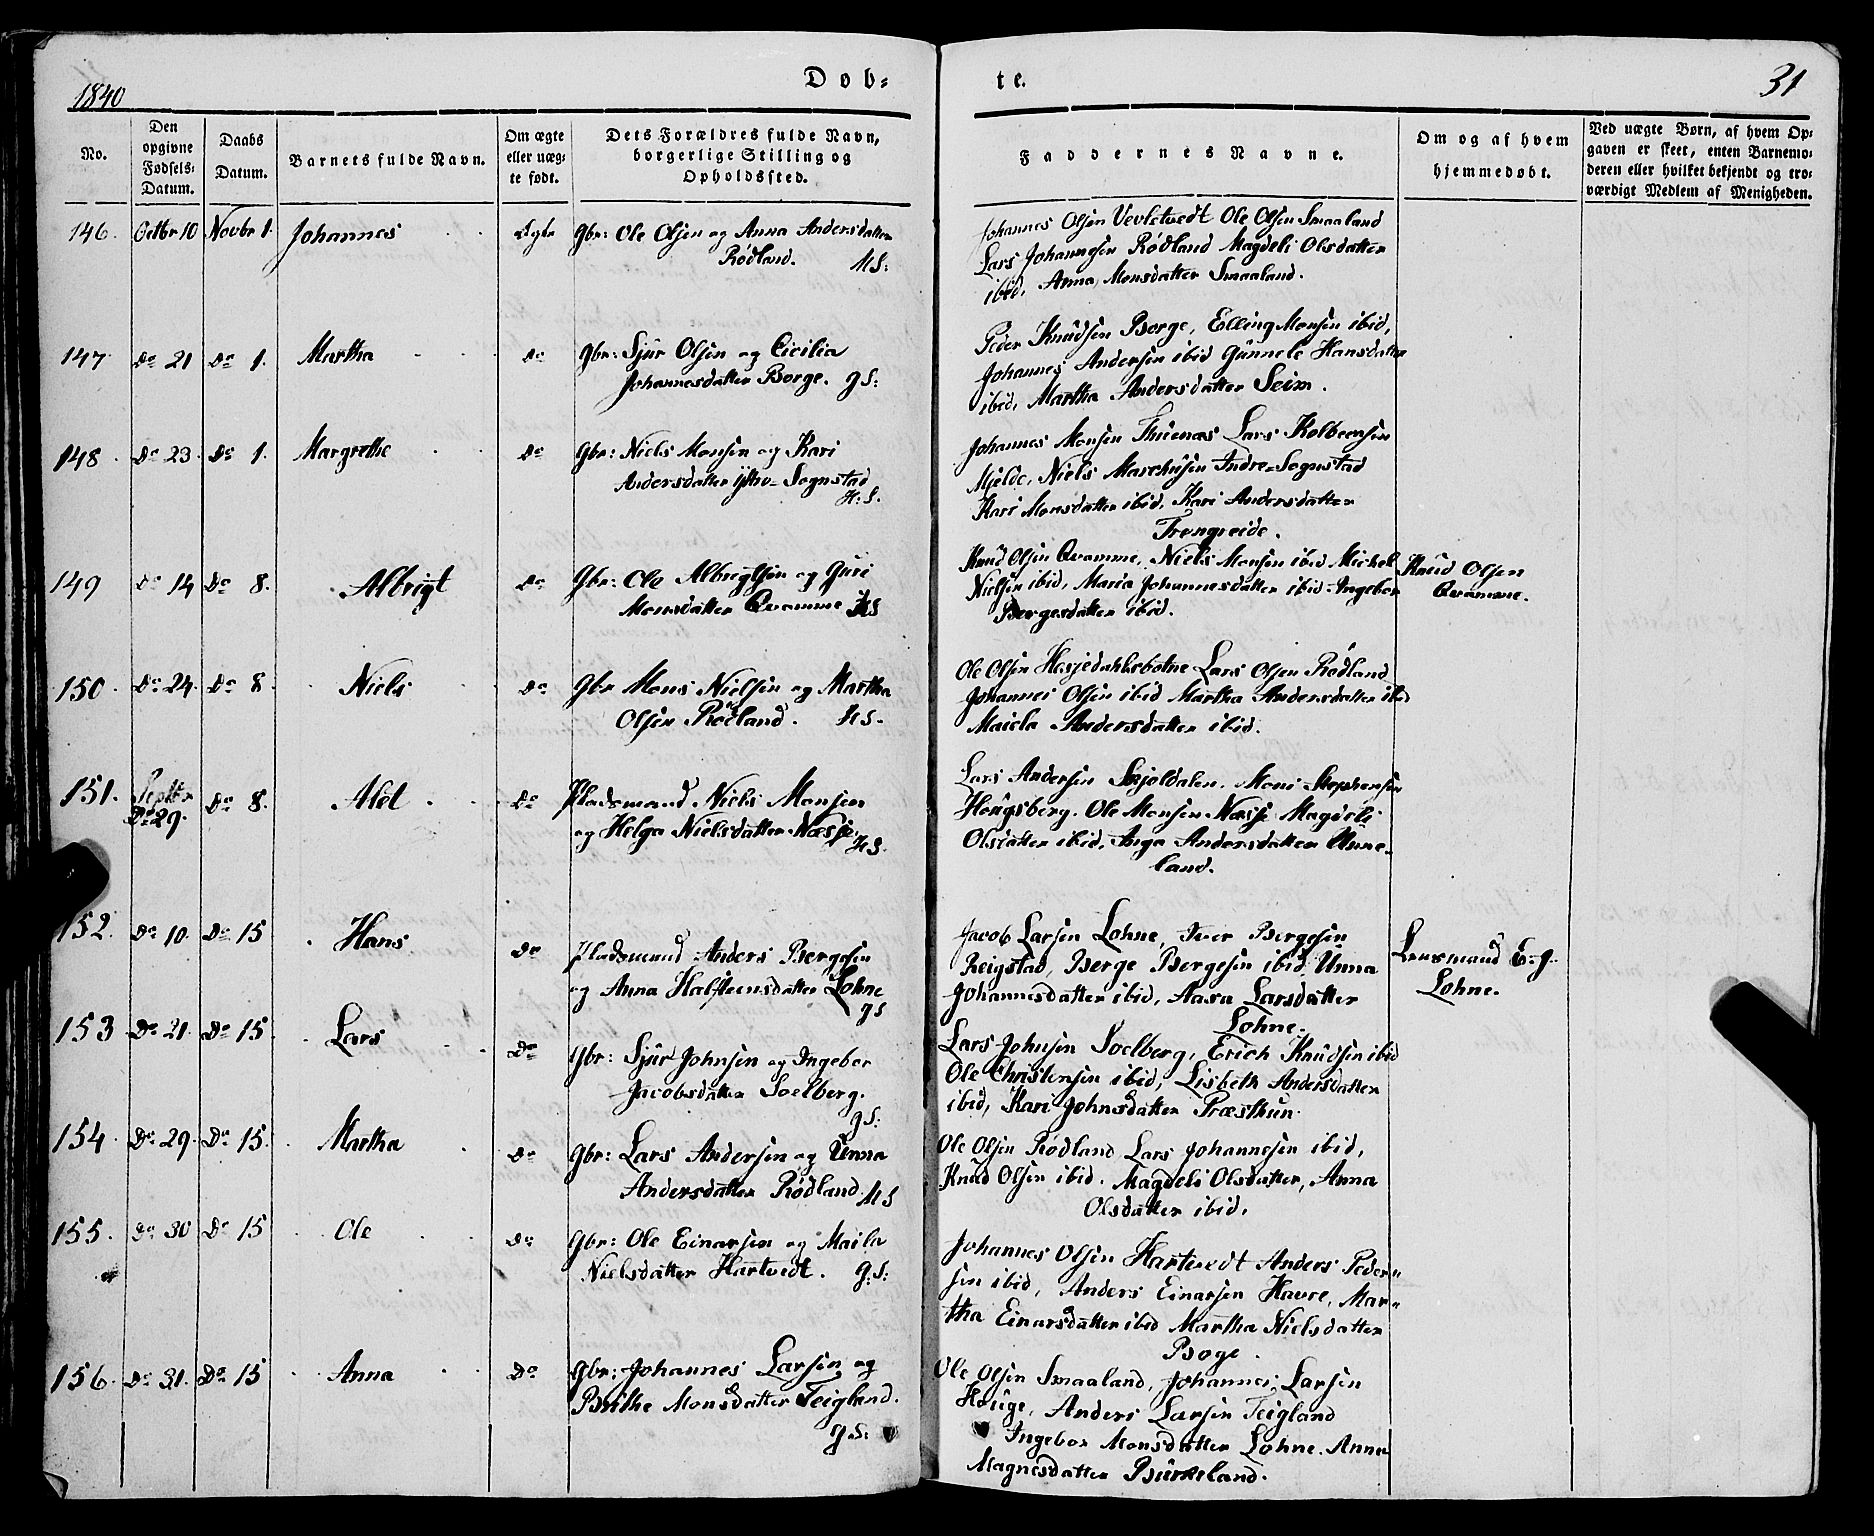 1840
Døb=
te.
31
No.
Den opgivne Fødsels= Datum.
Daabs Datum.
Barnets fulde Navn.
Om ægte eller uæg= te født.
Dets Forældres fulde Navn, borgerlige Stilling og Opholdssted.
Faddernes Navne.
Om og af hvem hjemmedøbt.
Ved uægte Børn, af hvem Op= gaven er skeet, enten Barnemo= deren eller hvilket bekjendt og tro= værdigt Medlem af Menigheden.
146. Octbr 10 Novbr 1. Johannes Ægte Gbr: Ole Olsen og Anna Andersdatter
Rødland. HS:
Johannes Olsen Vevletvedt Ole Olsen Smaaland
Lars Johannesen Rødland Magdeli Olsdatter
ibid, Anna Monsdatter Smaaland.
147. Do 21 Do 1. Martha Do Gbr: Sjur Olsen og Cicilia
Johannesdatter Borge. GS:
Peder Knudsen Borge, Elling Monsen ibid,
Johannes Andersen ibid Gunnele Hansdatter
ibid, Martha Andersdatter Seim.
148. Do 23. Do 1. Margrethe Do Gbr: Niels Monsen og Kari
Andersdatter Ythre=Sognstad
H.S.
Johannes Monsen Lars Kolbeensen
Mjelde, Niels Marchusen Indre=Sognstad
Kari Monsdatter ibid, Kari Andersdatter
Trengreide.
149 Do 14 Do 8. Albrigt Do Gbr: Ole Albrigtsen og Guri
Monsdatter Qvamme HS
Knud Olsen Qvamme, Niels Monsen ibid Mickel
Nielsen ibid, Maria Johannesdatter ibid Ingebor
Borgesdatter ibid.
Knud Olsen
Qvamme.
150. Do 24. Do 8. Niels Do Gbr Mons Nielsen og Martha
Olsen Rødland. HS.
Ole Olsen Hesjedahlsbotne Lars Olsen Rødland
Johannes Olsen ibid Martha Andersdatter ibid
Maiela Andersdatter ibid.
151. Septbr
Do 29. Do 8. Alet Do Pladsmand Niels Monsen
og Helga Nielsdatter Næsse HS.
Lars Andersen Skjoldalen. Mons Stephensen
Hougsberg. Ole Monsen Næsse Magdeli
Olsdatter ibid, Inga Andersdatter Unne=
land.
152. Do 10. Do 15 Hans Do Pladsmand Anders Bergesen
og Anna Halsteensdatter Lohne
GS
Jacob Larsen Lohne, Iver Bergesen
Reigstad, Berge Bergesen ibid, Unna
Johannesdatter ibid, Aasa Larsdatter
Lohne.
Lensmand
Lohne.
153 Do 21. Do 15. Lars Do Gbr: Sjur Johnsen og Ingebor
Jacobsdatter Soelberg.
GS:
Lars Johnsen Soelberg, Erich Knudsen ibid
Ole Christensen ibid, Lisbeth Andersdatter
ibid, Kari Johnsdatter Præsthun.
154. Do 29. Do 15. Martha Do Gbr: Lars Andersen og Unna
Andersdatter Rødland. HS
Ole Olsen Rødland Lars Johannesen ibid,
Knud Olsen ibid. Magdeli Olsdatter, Anna
Olsdatter ibid.
155. Do 30 Do 15 Ole Do Gbr: Ole Einarsen og Maila
Nielsdatter Hartvedt. G:S:
Johannes Olsen Hartvedt Anders Peder=
sen ibid, Anders Einarsen Havre, Mar=
tha Einarsdatter ibid Martha Nielsdatter
Boge.
156. Do 31. Do 15 Anna Do Gbr: Johannes Larsen og
Brithe Monsdatter Teigland.
G.S:
Ole Olsen Smaaland, Johannes Larsen
Houge, Anders Larsen Teigland
Ingebor Monsdatter Lohne. Anna
Magnesdatter Burkeland.